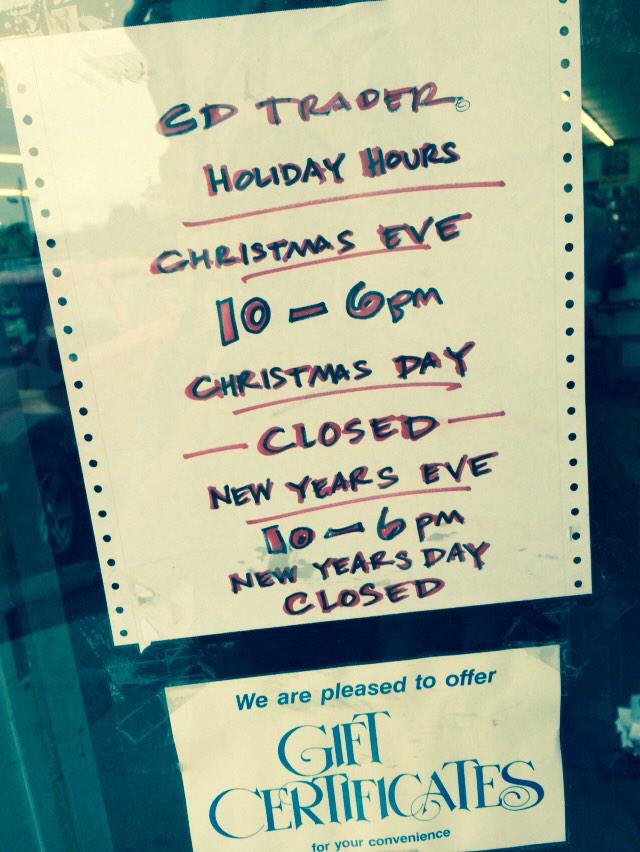 CD TRADER
HOLIDAY HOURS
CHRISTMAS EVE
10 - 6pm
CHRISTMAS DAY
- CLOSED -
NEW YEARS EVE
10 - 6 pm
NEW YEARS DAY
CLOSED
We are pleased to offer
GIFT
CERTIFICATES
for your convenience